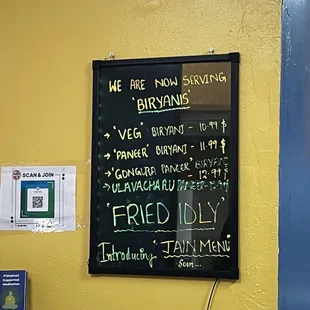 WE ARE NOW SERVING
'BIRYANIS'
→ 'VEG' BIRYANI - 10.99 $
→ 'PANEER' BIRYANI - 11.99 $
→ 'GONGURA PANEER' BIRYANI - 12.99 $
→ ULAVACHARU PANEER
'FRIED IDLY'
Introducing 'JAIN MENU'
Soon...
SCAN & JOIN
Pranahuti
Supported
Meditation